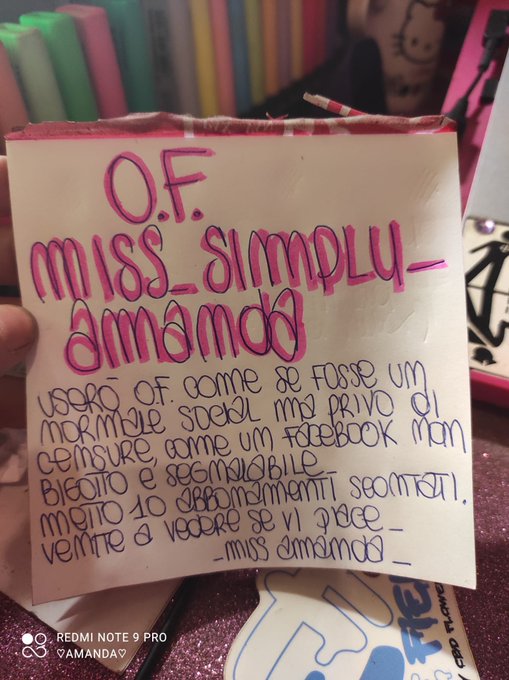 O.F.
MISS_SIMPLY_
AMANDA
USERÒ O.F. COME SE FOSSE UN
NORMALE SOCIAL MA PRIVO DI
CENSURE COME UN FACEBOOK NON
BIGOTTO E SEGNALABILE_
METTO 10 ABBONAMENTI SCONTATI.
VENITE A VEDERE SE VI PIACE_
_MISS AMANDA_
CBD FLOWER
REDMI NOTE 9 PRO
♡AMANDA♡